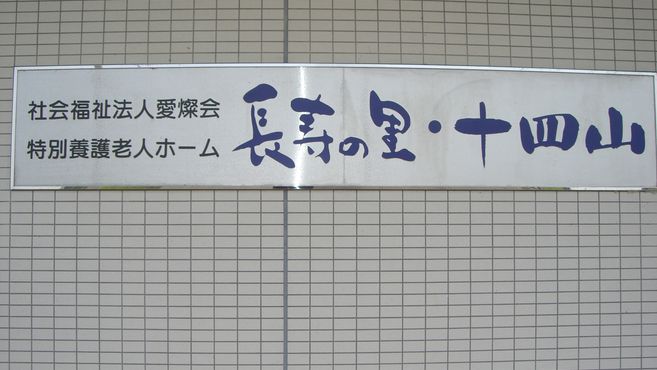 社会福祉法人愛燦会
特別養護老人ホーム
長寿の里・十四山